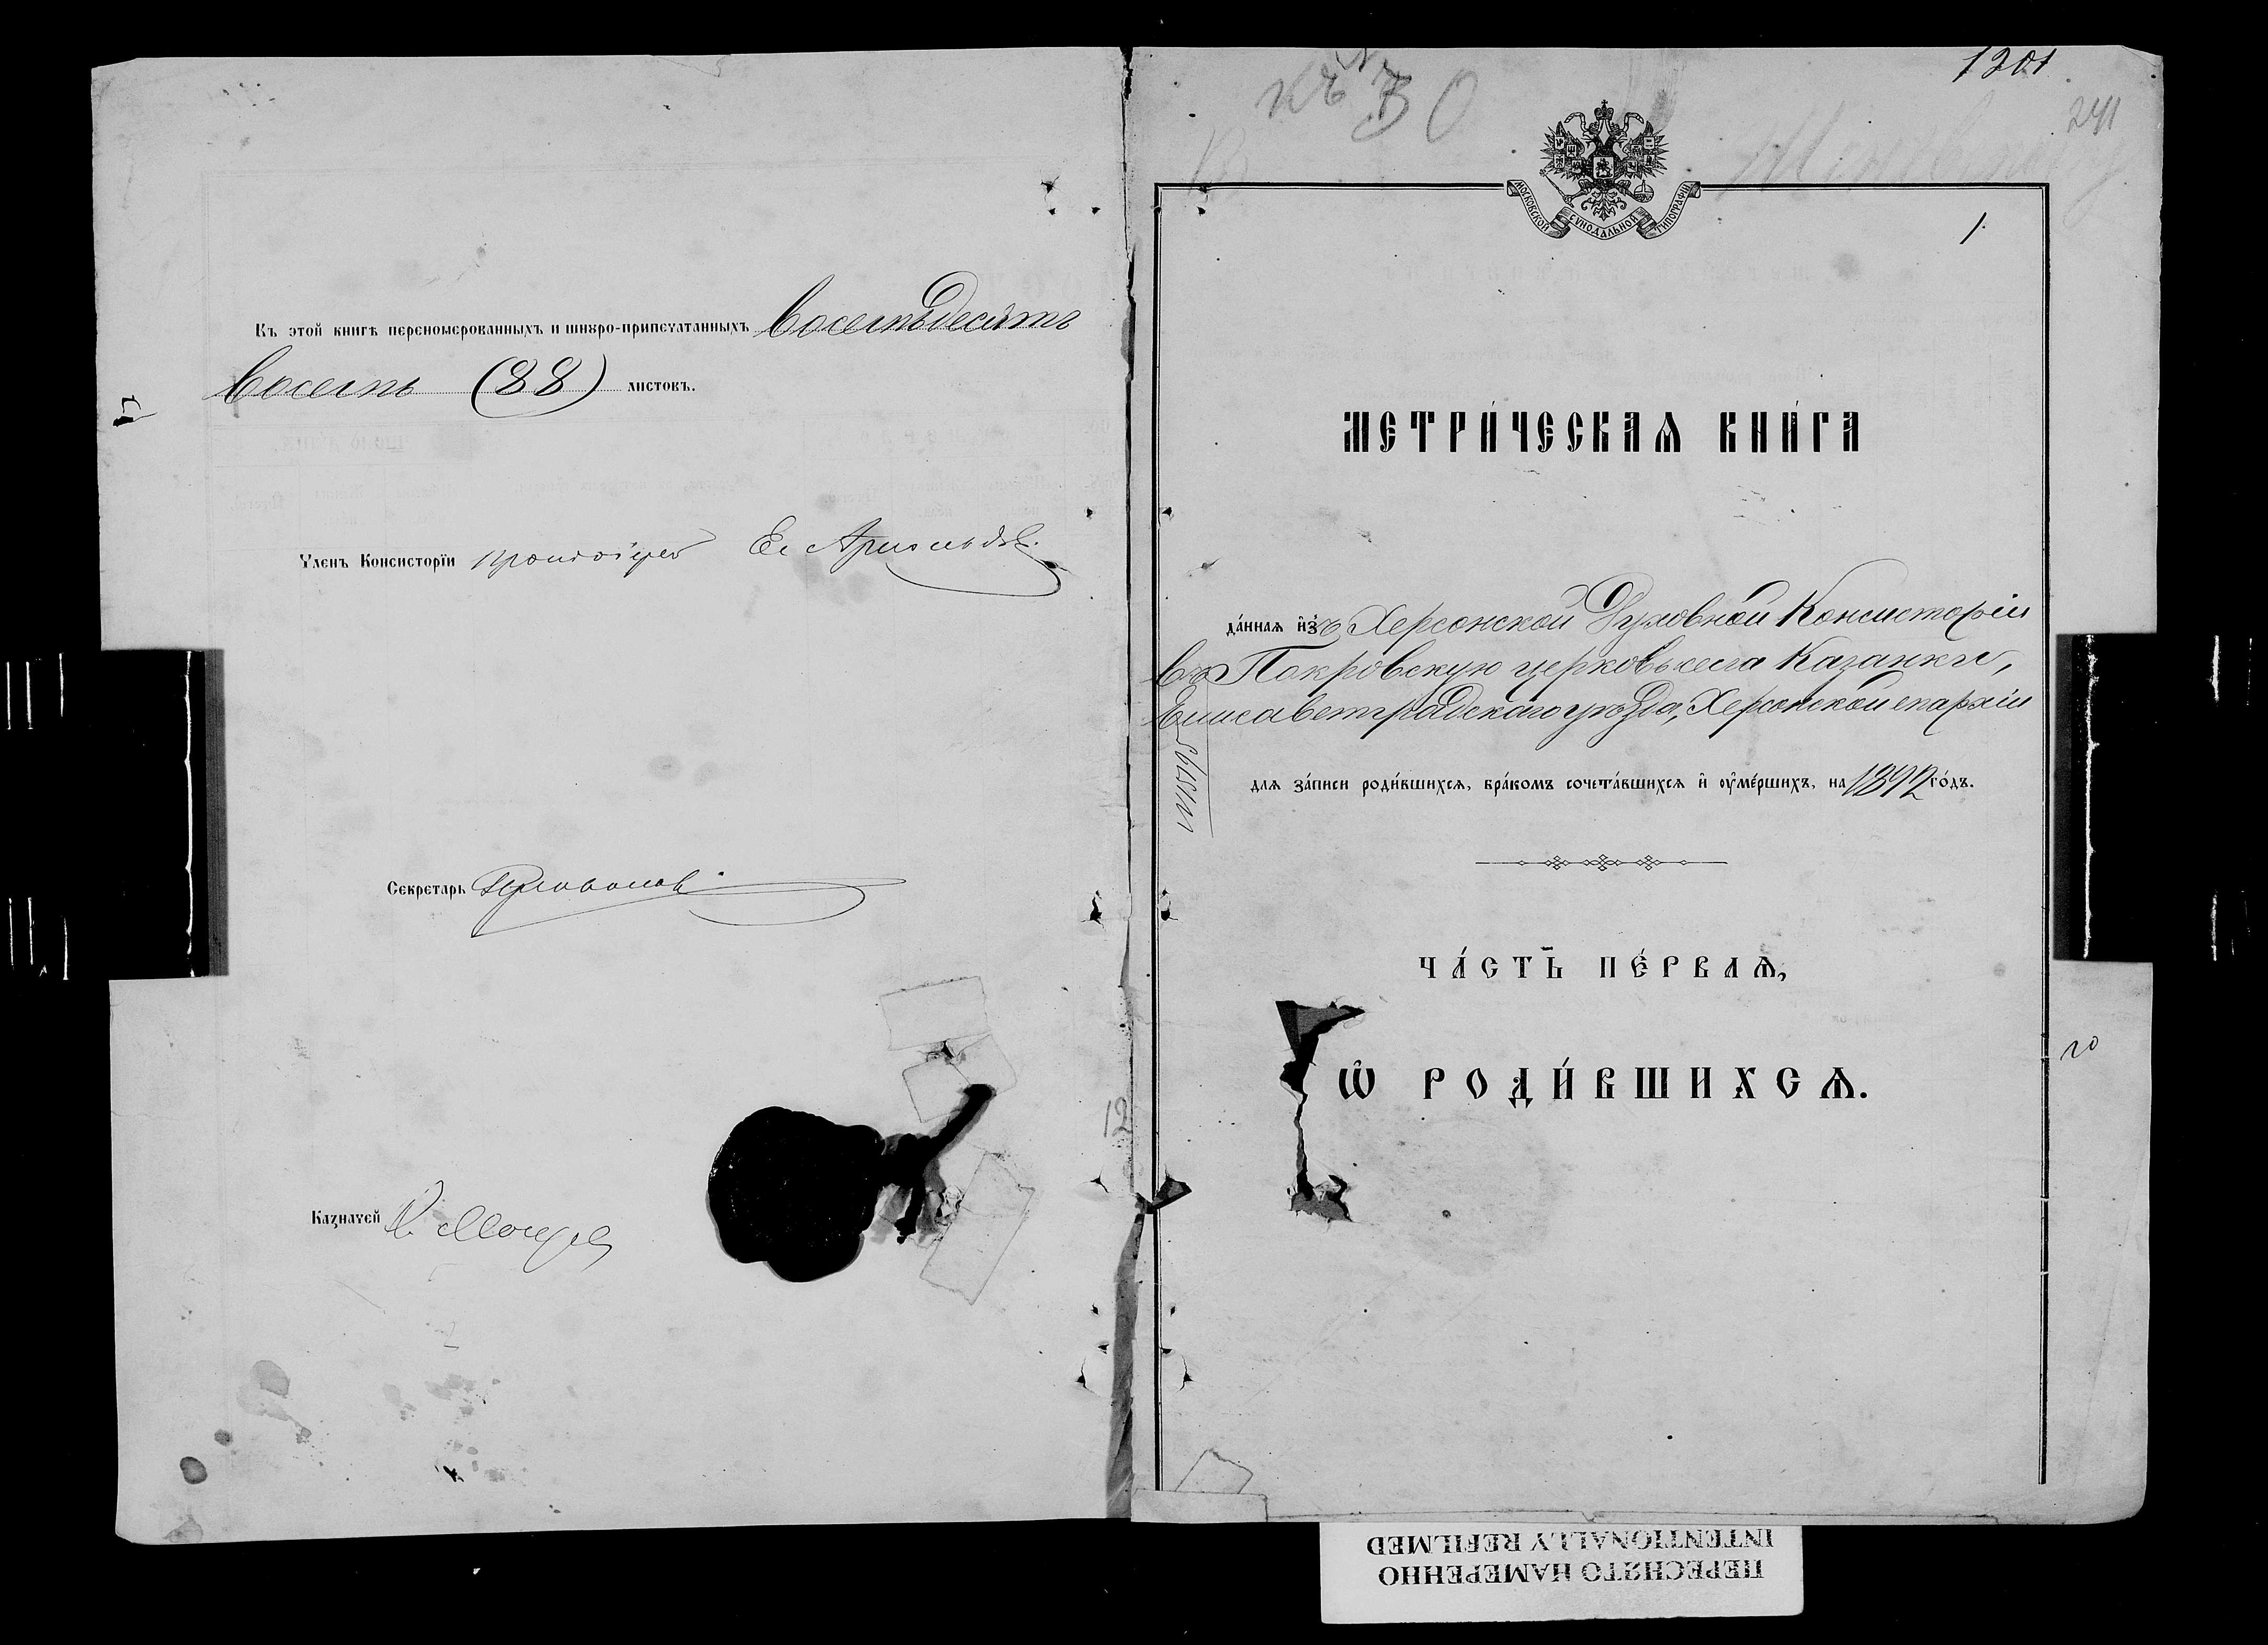 Къ этой книгѣ переномерованныхъ и шнуро-припечатанныхъ восемьдесятъ
восемь (88) листовъ.
Членъ Консисторіи протоіерей
Секретарь
Казначей
12
1201
241
МОСКОВСКОЙ СѴНОДАЛЬНОЙ ТИПОГРАФІИ
1.
МЕТРИ́ЧЕСКАѦ КНИ́ГА
да́ннаѧ и҆зъ Херсонской Духовной Консисторіи
въ Покровскую церковь села Казанки,
Елисаветградскаго уѣзда, Херсонской епархіи
для за́писи роди́вшихсѧ, бра́комъ сочета́вшихсѧ и҆ оу҆ме́ршихъ, на 1892 го́дъ.
ЧА́СТЬ ПЕ́РВАѦ,
Ѡ҆ РОДИ́ВШИХСѦ.
го
ПЕРЕСНЯТО НАМЕРЕННО
INTENTIONALLY REFILMED